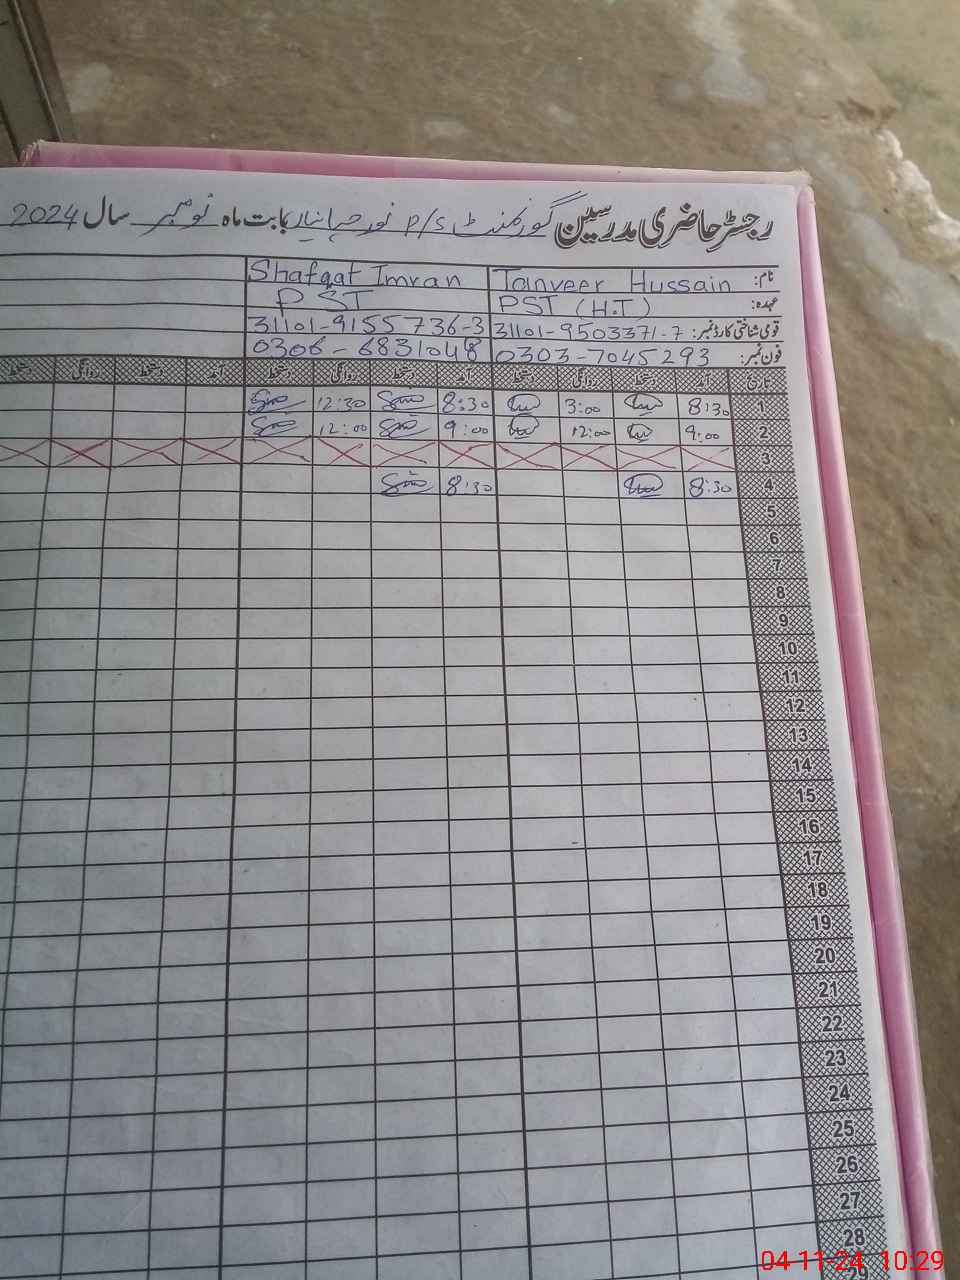 رجسٹر حاضری مدرسین گورنمنٹ P/S نور جہانیاں بابت ماہ نومبر سال 2024
نام: Tanveer Hussain Shafqat Imran
عہدہ: PST (H.T) PST
قومی شناختی کارڈ نمبر: 31101-9503371-7 31101-9155736-3
فون نمبر: 0303-7045293 0306-6831048
تاریخ آمد دستخط روانگی دستخط آمد دستخط روانگی دستخط آمد دستخط روانگی دستخط
1 8:30 3:00 8:30 12:30
2 9:00 12:00 9:00 12:00
3
4 8:30 8:30
5
6
7
8
9
10
11
12
13
14
15
16
17
18
19
20
21
22
23
24
25
26
27
28
29
04-11-24 10:29